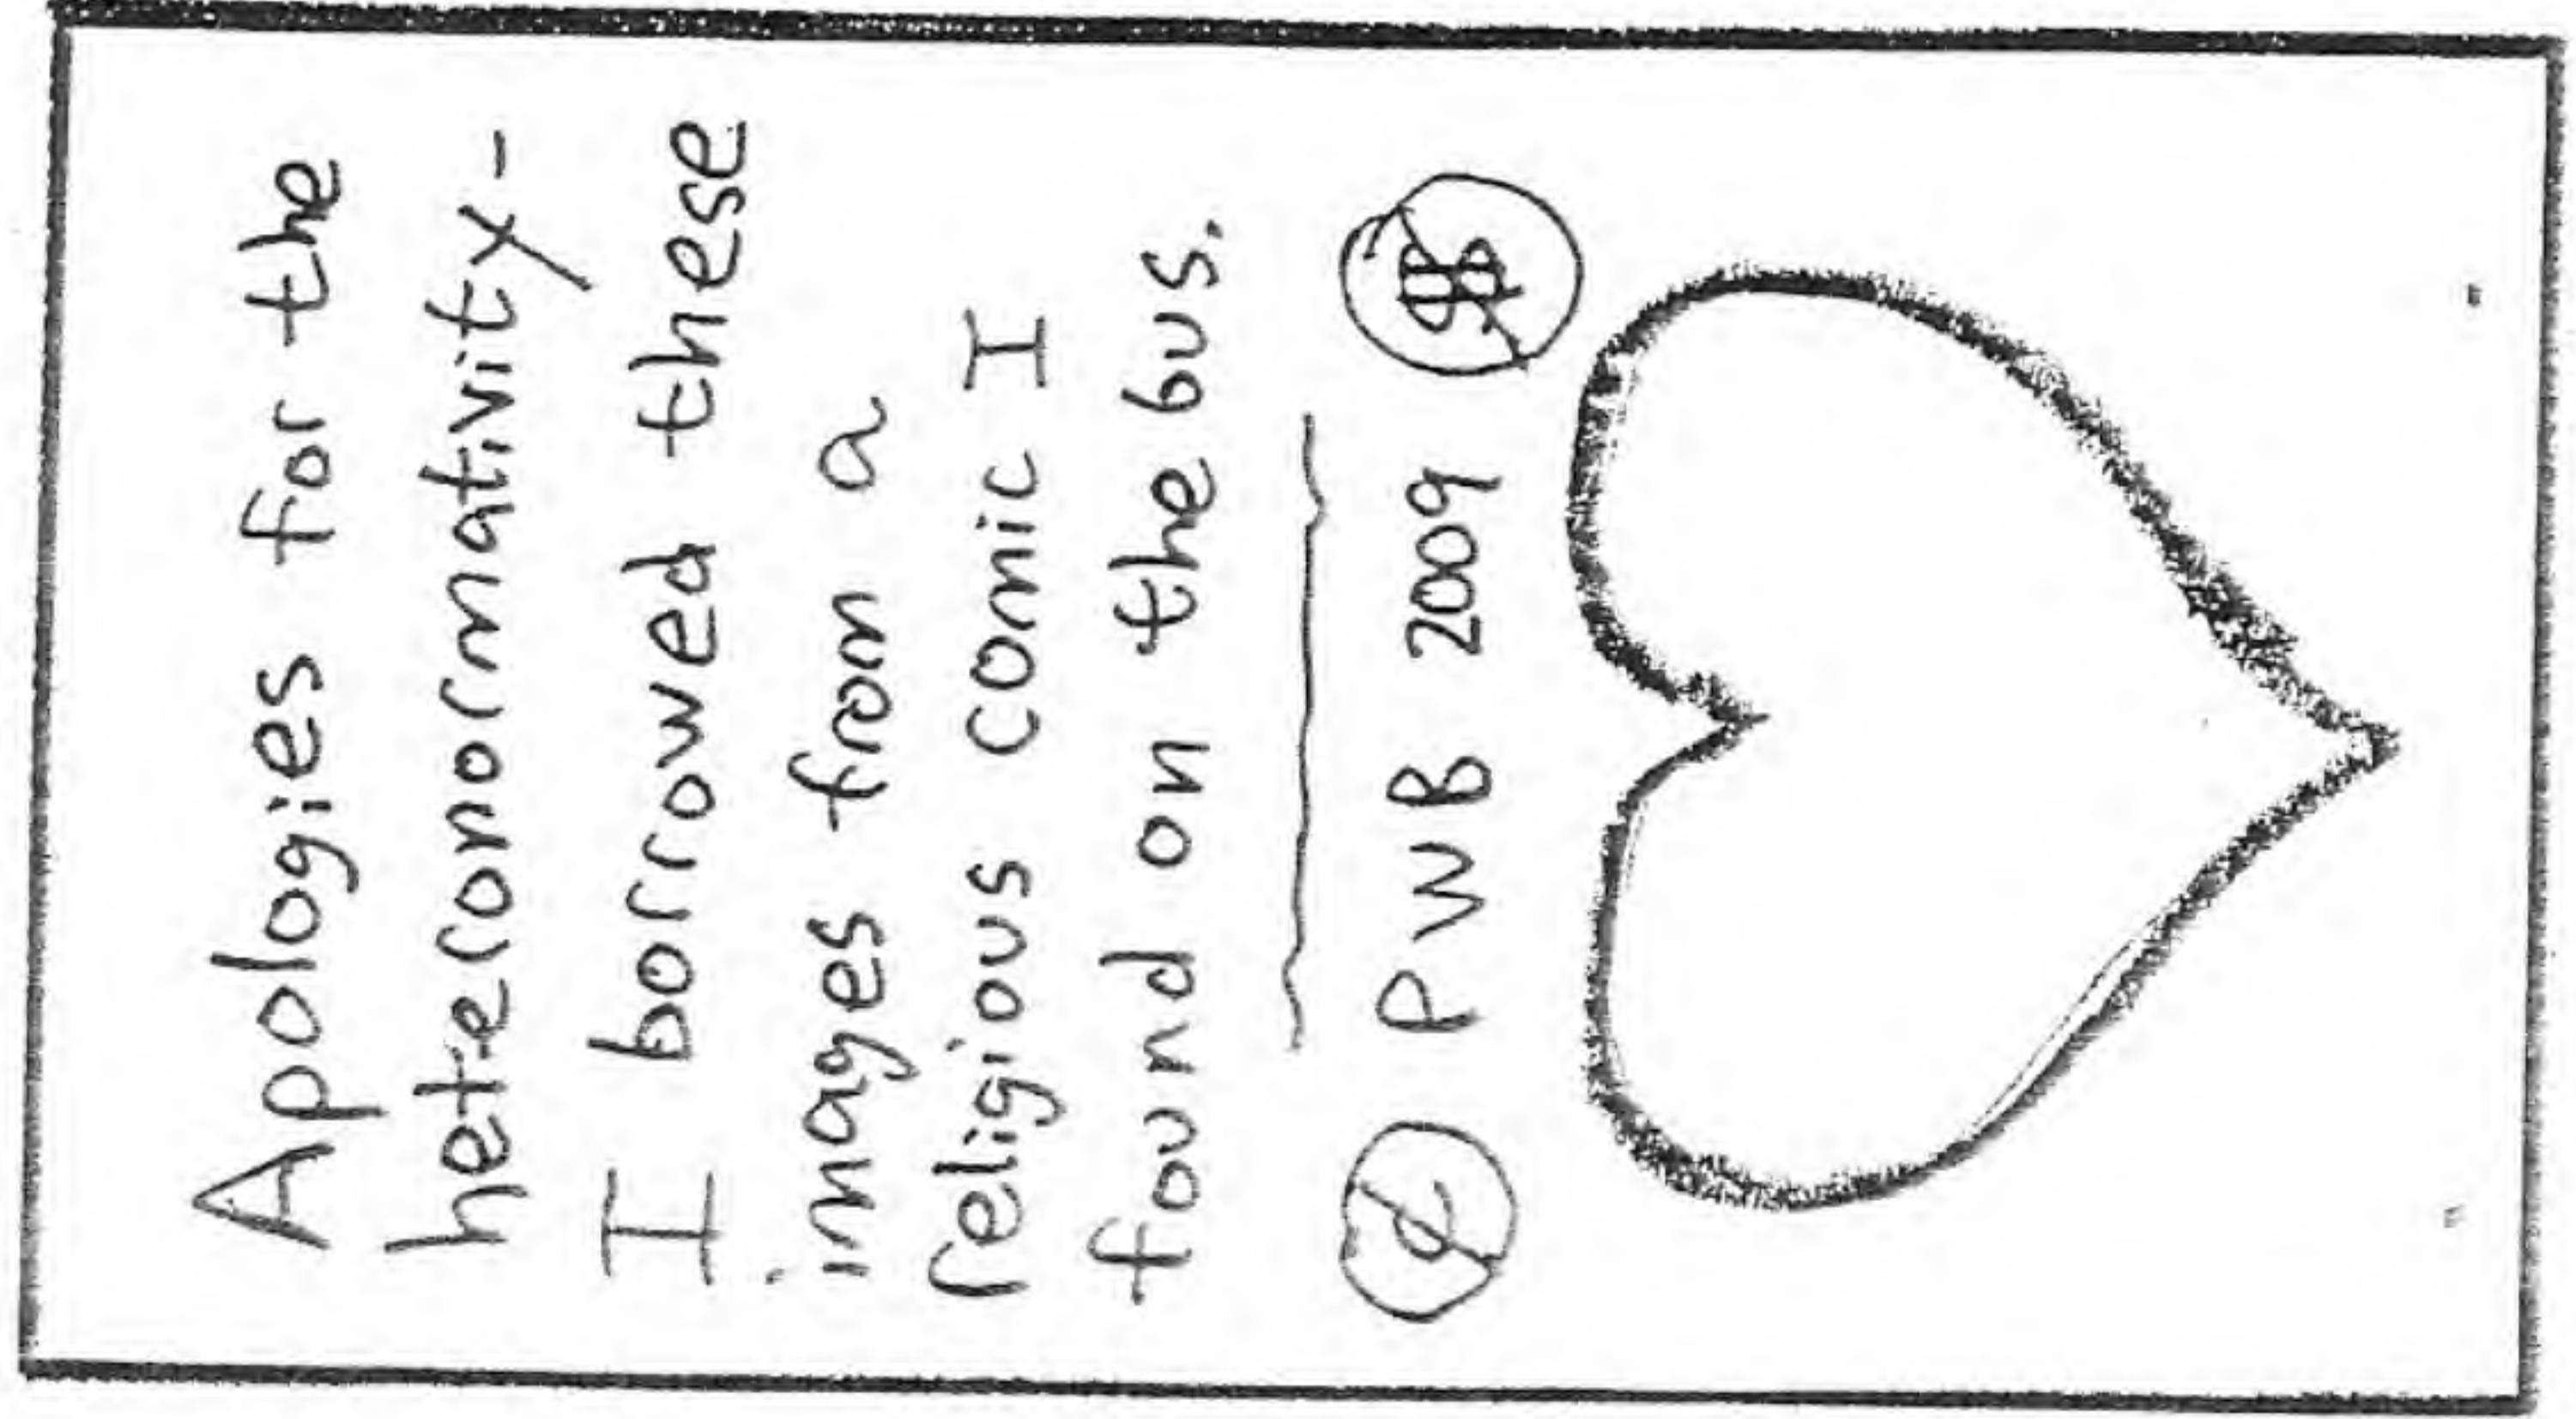 Apologies for the
heteronormativity-
I borrowed these
images from a
religious comic I
found on the bus.
PWB 2009 $